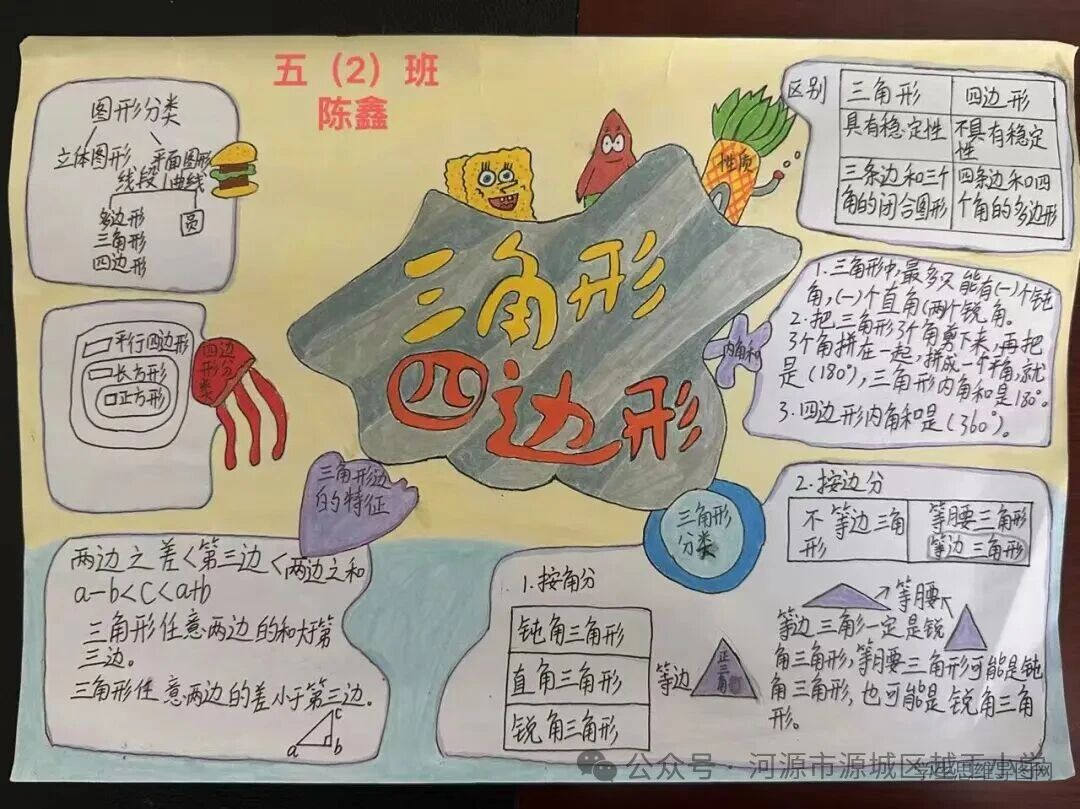 五（2）班
陈鑫
三角形
四边形
图形分类
立体图形 平面图形
线段 曲线
多边形 圆
三角形
四边形
平行四边形
长方形
正方形
四边
形分
类
性质
区别 三角形 四边形
具有稳定性 不具有稳定
性
三条边和三个 四条边和四
角的闭合图形 个角的多边形
内角和
1.三角形中,最多只能有(一)个钝
角,(一)个直角(两个锐角。
2.把三角形3个角剪下来,再把
3个角拼在一起,拼成一个平角,就
是(180°),三角形内角和是180°。
3.四边形内角和是(360°)。
三角形边
的特征
两边之差<第三边<两边之和
a-b<c<a+b
三角形任意两边的和大于第
三边。
三角形任意两边的差小于第三边。
c
a b
三角形
分类
1.按角分
钝角三角形
直角三角形
锐角三角形
等边
正
三
角
2.按边分
不等边三角 等腰三角形
形 等边三角形
等腰
等边三角形一定是锐
角三角形,等腰三角形可能是钝
角三角形,也可能是锐角三角
形。
公众号·河源市源城区越王小学